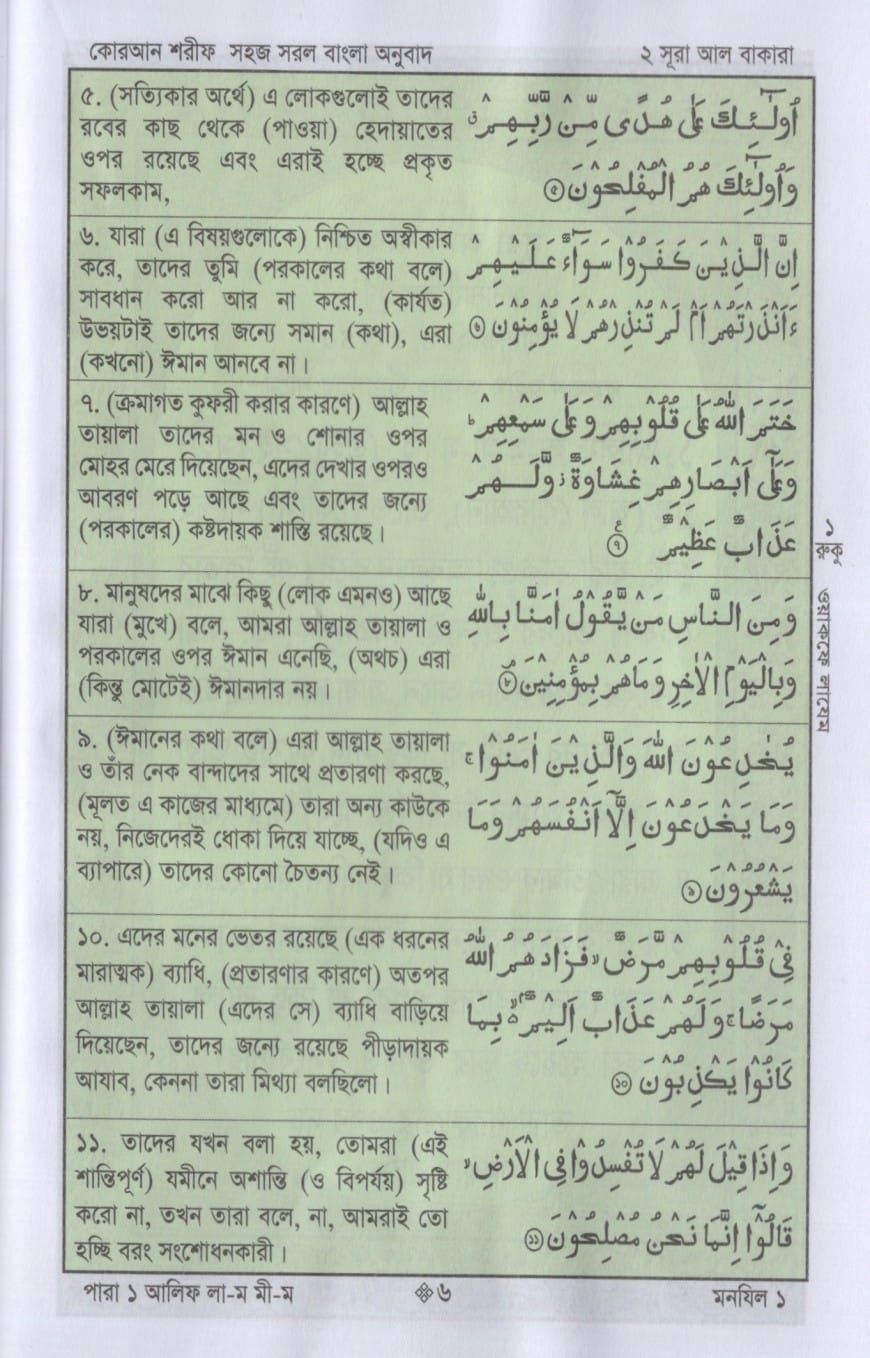 কোরআন শরীফ সহজ সরল বাংলা অনুবাদ
২ সূরা আল বাকারা
৫. (সত্যিকার অর্থে) এ লোকগুলোই তাদের
রবের কাছ থেকে (পাওয়া) হেদায়াতের
ওপর রয়েছে এবং এরাই হচ্ছে প্রকৃত
সফলকাম,
أُولَٰٓئِكَ عَلَىٰ هُدًى مِّنْ رَّبِّهِمْ ق
وَأُولَٰٓئِكَ هُمُ الْمُفْلِحُونَ ৫
৬. যারা (এ বিষয়গুলোকে) নিশ্চিত অস্বীকার
করে, তাদের তুমি (পরকালের কথা বলে)
সাবধান করো আর না করো, (কার্যত)
উভয়টাই তাদের জন্যে সমান (কথা), এরা
(কখনো) ঈমান আনবে না।
إِنَّ الَّذِيْنَ كَفَرُوْا سَوَآءٌ عَلَيْهِمْ
ءَاَنْذَرْتَهُمْ اَمْ لَمْ تُنْذِرْهُمْ لَا يُؤْمِنُوْنَ ৬
৭. (ক্রমাগত কুফরী করার কারণে) আল্লাহ
তায়ালা তাদের মন ও শোনার ওপর
মোহর মেরে দিয়েছেন, এদের দেখার ওপরও
আবরণ পড়ে আছে এবং তাদের জন্যে
(পরকালের) কষ্টদায়ক শাস্তি রয়েছে।
خَتَمَ اللّٰهُ عَلٰى قُلُوْبِهِمْ وَعَلٰى سَمْعِهِمْ ط
وَعَلٰٓى اَبْصَارِهِمْ غِشَاوَةٌ ز وَّلَهُمْ
عَذَابٌ عَظِيْمٌ ع ৭
১ রুকু
৮. মানুষদের মাঝে কিছু (লোক এমনও) আছে
যারা (মুখে) বলে, আমরা আল্লাহ তায়ালা ও
পরকালের ওপর ঈমান এনেছি, (অথচ) এরা
(কিন্তু মোটেই) ঈমানদার নয়।
وَمِنَ النَّاسِ مَنْ يَّقُوْلُ اٰمَنَّا بِاللّٰهِ
وَبِالْيَوْمِ الْاٰخِرِ وَمَا هُمْ بِمُؤْمِنِيْنَ م ৮
ওয়াকফে লাযেম
৯. (ঈমানের কথা বলে) এরা আল্লাহ তায়ালা
ও তাঁর নেক বান্দাদের সাথে প্রতারণা করছে,
(মূলত এ কাজের মাধ্যমে) তারা অন্য কাউকে
নয়, নিজেদেরই ধোকা দিয়ে যাচ্ছে, (যদিও এ
ব্যাপারে) তাদের কোনো চৈতন্য নেই।
يُخٰدِعُوْنَ اللّٰهَ وَالَّذِيْنَ اٰمَنُوْا ج
وَمَا يَخْدَعُوْنَ اِلَّآ اَنْفُسَهُمْ وَمَا
يَشْعُرُوْنَ ৯
১০. এদের মনের ভেতর রয়েছে (এক ধরনের
মারাত্মক) ব্যাধি, (প্রতারণার কারণে) অতপর
আল্লাহ তায়ালা (এদের সে) ব্যাধি বাড়িয়ে
দিয়েছেন, তাদের জন্যে রয়েছে পীড়াদায়ক
আযাব, কেননা তারা মিথ্যা বলছিলো।
فِيْ قُلُوْبِهِمْ مَّرَضٌ لا فَزَادَهُمُ اللّٰهُ
مَرَضًا ج وَلَهُمْ عَذَابٌ اَلِيْمٌ ۢ لا بِمَا
كَانُوْا يَكْذِبُوْنَ ১০
১১. তাদের যখন বলা হয়, তোমরা (এই
শান্তিপূর্ণ) যমীনে অশান্তি (ও বিপর্যয়) সৃষ্টি
করো না, তখন তারা বলে, না, আমরাই তো
হচ্ছি বরং সংশোধনকারী।
وَاِذَا قِيْلَ لَهُمْ لَا تُفْسِدُوْا فِى الْاَرْضِ لا
قَالُوْٓا اِنَّمَا نَحْنُ مُصْلِحُوْنَ ১১
পারা ১ আলিফ লা-ম মী-ম
৬
মনযিল ১